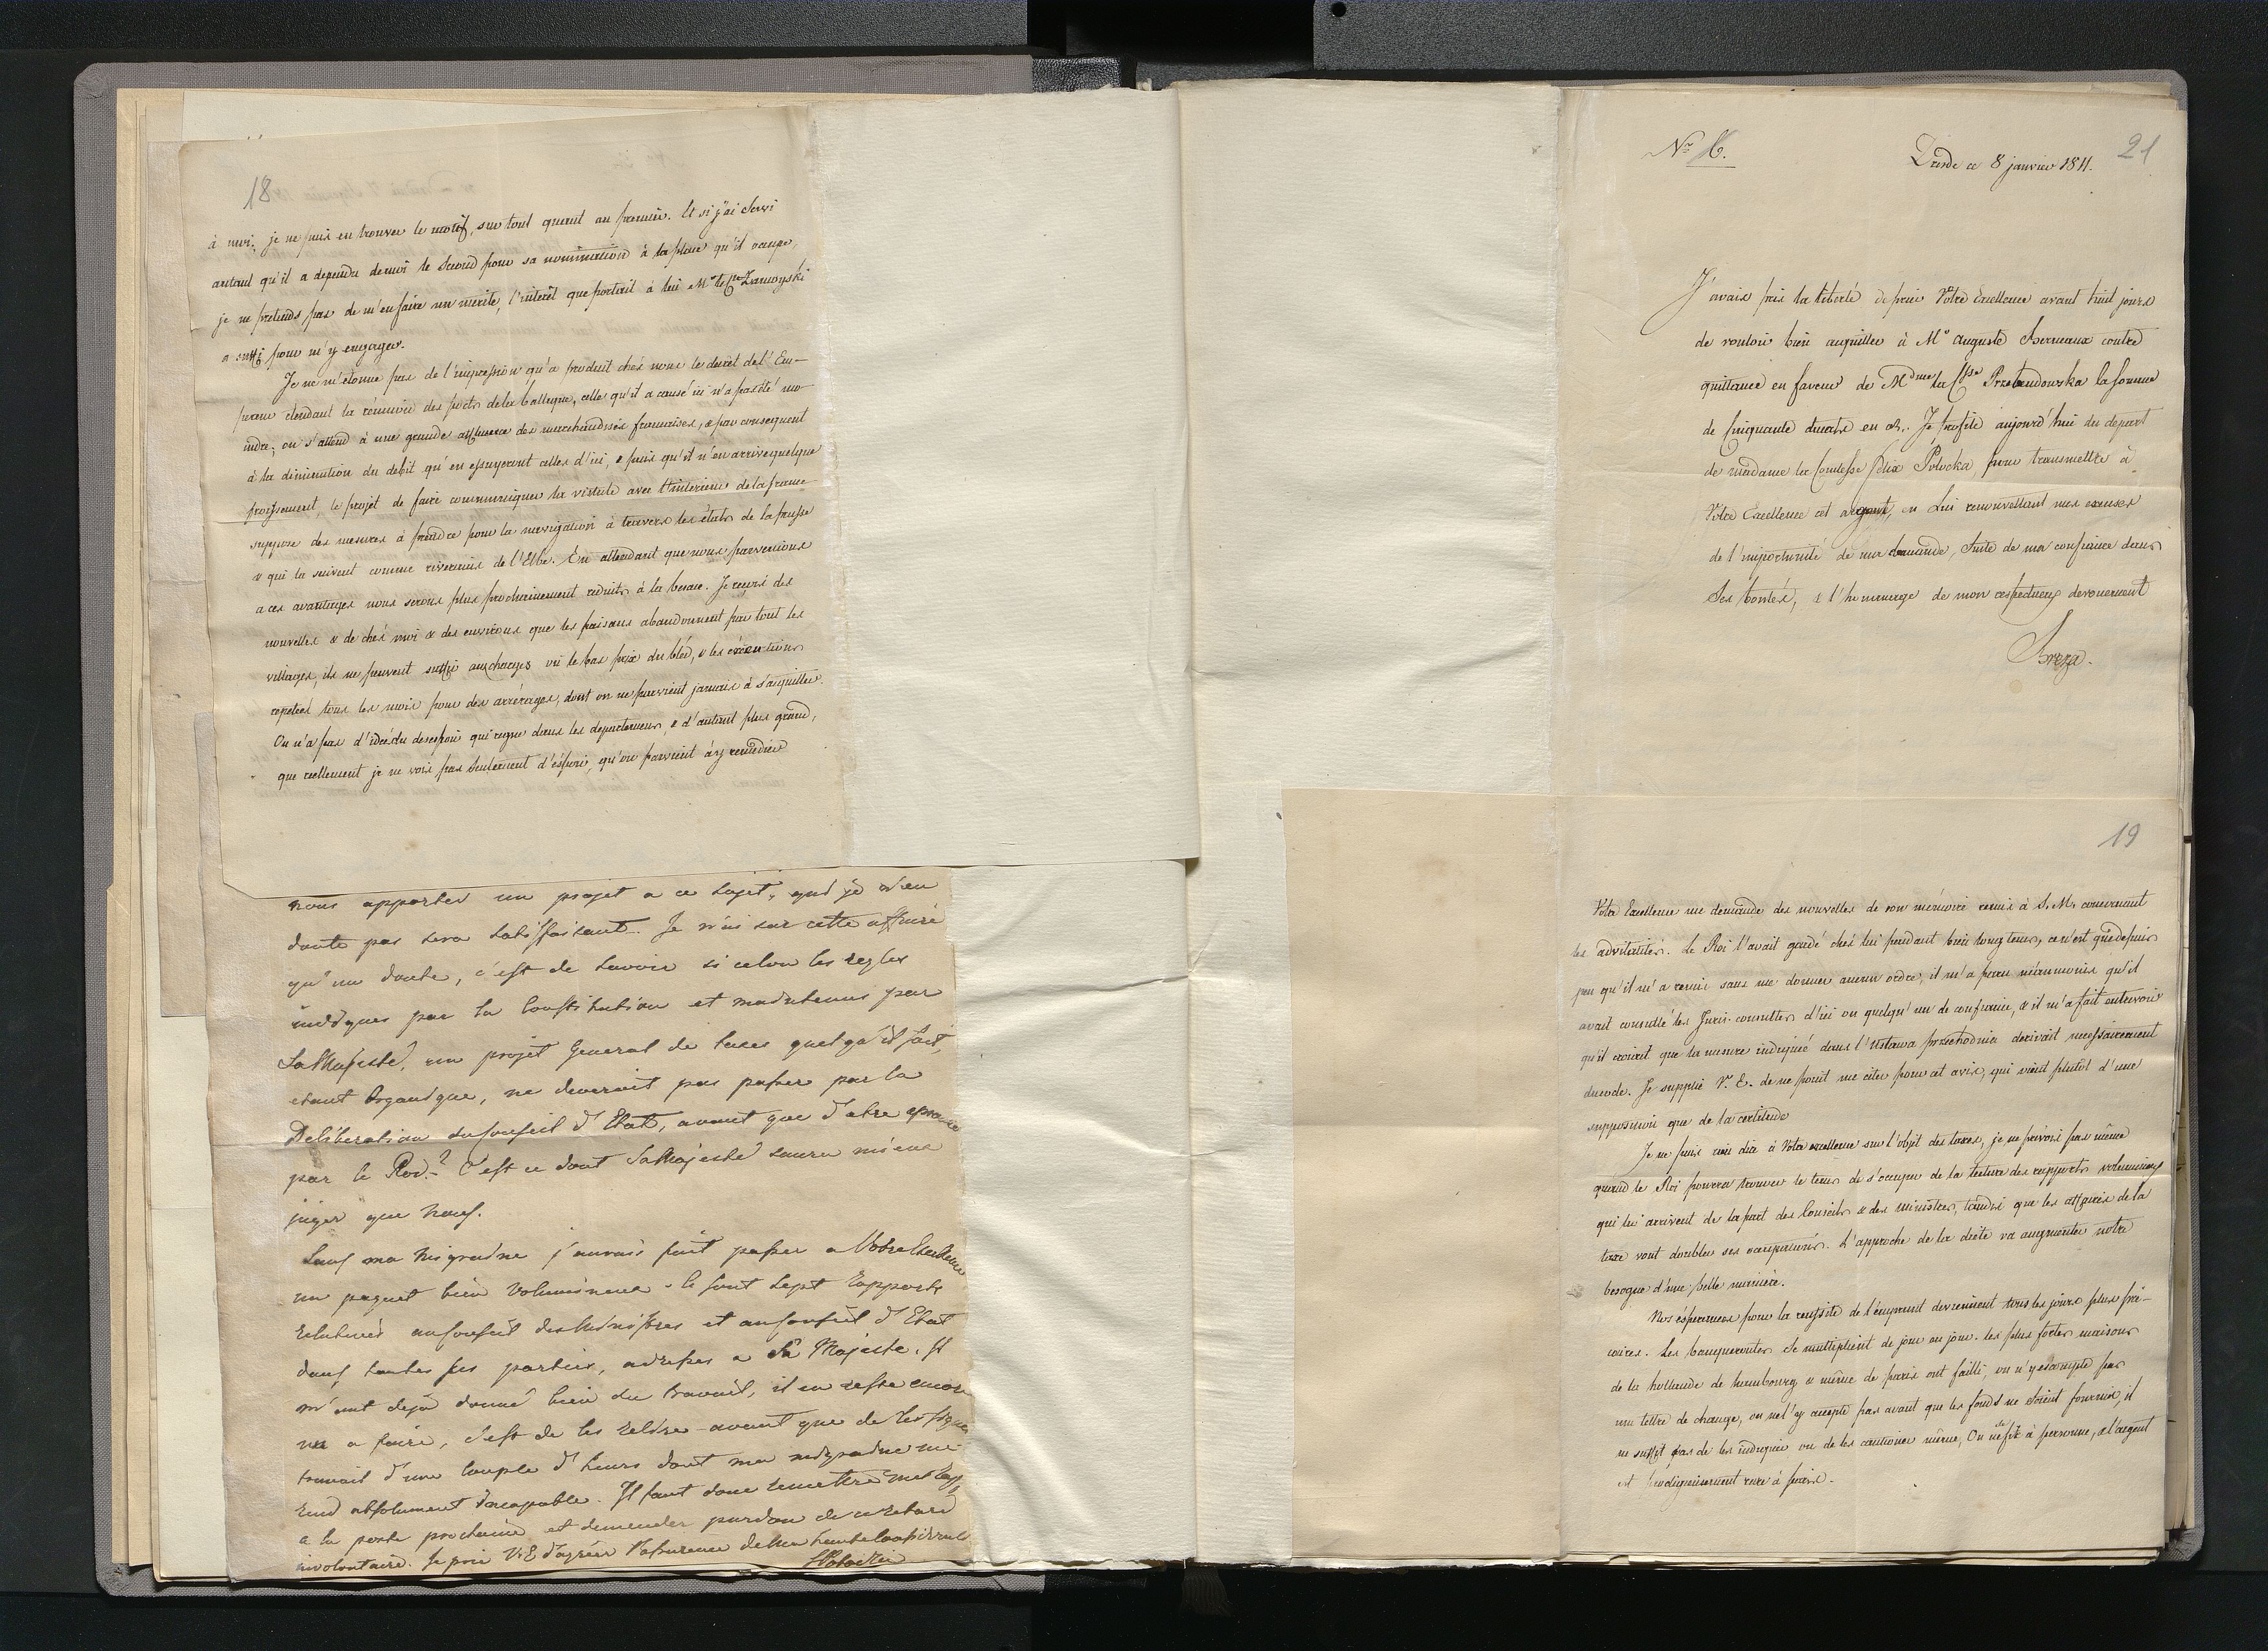 18
à moi, je ne puis en trouver le motif, sur tout quant au premier. Et si j'ai servi
autant qu'il a dependu de moi le second pour sa nomination à la place qu'il occupe,
je ne pretends pas de m'en faire un merite, l'interêt que portait à lui Mr le Cte Zamoyski
a suffi pour m'y engager.
Je ne m'étonne pas de l'impression qu'a produit chés nous le decret de l'Em-
pereur etendant la réunion des ports de la baltique, celle qu'il a causé ici n'a pas été mo-
indre; on s'attend à une grande affluence des marchandises françaises, & par consequent
à la diminution du debit qu'en essuyeront celles d'ici, & puis qu'il n'en arrive quelque
froissement, le projet de faire communiquer la vistule avec l'interieur de la france
suppose des mesures à prendre pour la navigation à travers les états de la prusse
& qui la suivent comme riverains de l'Elbe. En attendant que nous parvenions
a ces avantages nous serons plus prochainement reduits à la besace. Je reçois des
nouvelles & de chés moi & des environs que les païsans abandonnent par tout les
villages, ils ne peuvent suffir aux charges vû le bas prix du bled, & les exécutions
repetées tous les mois pour des arrérages, dont on ne parvient jamais à s'acquitter.
On n'a pas d'idée du desespoir qui regne dans les departemens, & d'autant plus grand,
que reellement je ne vois pas seulement d'éspoir, qu'on parvient à y remedier
nous apporter un projet a ce sujet, qui je n'en
doute pas sera satisfaisant. Je n'ai sur cette affaire
qu'un doute, c'est de savoir si selon les regles
indiques par la Constitution et maintenues par
Sa Majesté, un projet General de taxes quel qu'il soit,
etant Organique, ne deverait pas passer par la
Deliberation du Conseil d'Etat, avant que d'etre aprouvé
par le Roi? C'est ce dont Sa Majesté saura mieux
juger que nous.
Sauf ma migraine j'aurais fait passer a Votre Excellence
un paquet bien volumineux. Ce sont sept Rapports
relatives au Conseil des Ministres et au Conseil d'Etat
dans toutes ses parties, adresses a Sa Majeste. Il
m'ont deja donné bien du travail, il en reste encore
un a faire, c'est de les relire avant que de les signer
travail d'une couple d'heures dont ma migraine me
rend absolument incapable. Il faut donc remettre
a la poste prochaine et demander pardon de ce retard
involontaire. Je prie V. E. d'agréer l'assurance de ma haute consideration
SPotocki
Nr 6.
21
Dresde ce 8 janvier 1811.
J'avais pris la liberté de prier Votre Excellence avant huit jours
de vouloir bien acquitter à Mr Auguste Bermaux contre
quittance en faveur de Mdme la Ctsse Przebendowska la somme
de cinquante ducats en or. Je profite aujourd'hui du depart
de madame la Comtesse felix Potocka, pour transmettre à
Votre Excellence cet argent, en Lui renouvellant mes excuses
de l'importunité de ma demande, suite de ma confiance dans
Ses bontés, & l'hommage de mon respectueux devouement
Breza.
19
Votre Excellence me demande des nouvelles de son mémoire remis à S. M. concernant
les advitalités. Le Roi l'avait gardé chés lui pendant bien long tems, ce n'est que depuis
peu qu'il m'a remis sans me donner aucun ordre, il m'a paru néanmoins qu'il
avait consulté les Juris-consultes d'ici ou quelqu'un de confiance, & il m'a fait entrevoir
qu'il croiait que la mesure indiquée dans l'Ustawa przechodnia derivait necessairement
du code. Je supplie V. E. de ne point me citer pour cet avis, qui vient plutôt d'une
supposition que de la certitude
Je ne puis rien dire à Votre excellence sur l'objet des taxes, je ne prévois pas même
quand le Roi pourra trouver le tems de s'occuper de la lecture des rapports volumineux
qui lui arrivent de la part des Conseils & des ministres, tandis que les affaires de la
taxe vont doubler ses occupations. L'approche de la diète va augmenter notre
besogne d'une belle manière.
Nos éspérances pour la reussite de l'emprunt deviennent tous les jours plus pré-
caires. Les banqueroutes se multiplient de jour en jour. les plus fortes maisons
de la hollande de hambourg & même de paris ont failli, on n'y escompte pas
une lettre de change, on ne l'y accepte pas avant que les fonds ne soient fournis, il
ne suffit pas de les indiquer ou de les cautioner même, On ne se fie à personne, & l'argent
est prodigieusement rare à paris.